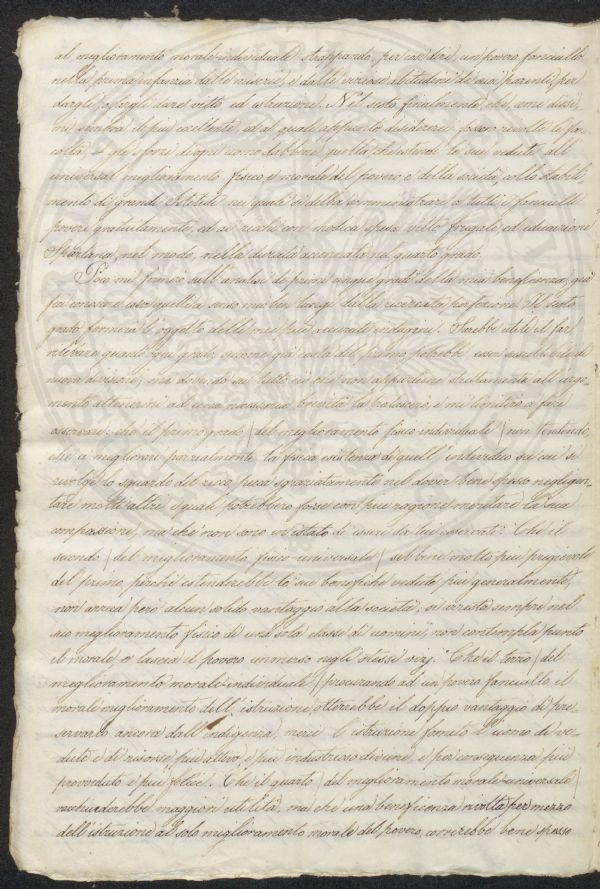 al miglioramento morale individuale strappando, per così dire, un povero fanciullo
nella prima infanzia dalle miserie, e dalle viziose abitudini de' suoi parenti, per
dargli, o fargli dare vitto ed istruzione. Nel sesto finalmente, che, come dissi,
mi sembra il più eccellente, ed al quale appunto desidererei fossero rivolte le fa-
coltà, e gli sforzi d'ogni uomo dabbene, quella, che estende le sue vedute all'
universal miglioramento fisico e morale del povero, e della società, collo stabili-
mento di grandi Istituti nei quali si debba somministrare a tutti i fanciulli
poveri gratuitamente, ed ai ricchi con modica spesa vitto frugale, ed educazione
Spartana, nel modo, e nella durata accennata nel quarto grado.
Poco mi fermerò sull'analisi de' primi cinque gradi della mia beneficenza, già
fai conoscere esser quelli a senso mio ben lungi dalla ricercata perfezione. Il sesto
grado formerà l'oggetto delle mie più accurate indagini. Sarebbe utile il far
rilevare quanto ogni grado, siccome già costa del primo, potrebbe esser suscettibile di
nuove divisioni; ma dovendo su tutto ciò che non appartiene direttamente all'argo-
mento attenermi ad una massima brevità la tralascerò, e mi limiterò a fare
osservare: che il primo grado | del miglioramento fisico individuale | non tendendo,
che a migliorare parzialmente la fisica esistenza di quell'individuo su cui si
rivolge lo sguardo del ricco, pecca sgraziatamente nel dover bene spesso negligen-
tare molti altri, i quali potrebbero forse con più ragione meritare la sua
compassione, ma che non sono in istato di essere da lui osservati: Che il
secondo | del miglioramento fisico universale | sebbene molto più pregievole
del primo perchè estenderebbe le sue benefiche vedute più generalmente,
non arreca però alcun solido vantaggio alla società, si arresta sempre nel
solo miglioramento fisico di una sola classe di uomini, non contempla punto
il morale, e lascia il povero immerso negli stessi vizj: Che il terzo | del
miglioramento morale individuale | procurando ad un povero fanciullo il
morale miglioramento dell'istruzione, otterrebbe il doppio vantaggio di pre-
servarlo ancora dall'indigenza, mercè l'istruzione fornito l'uomo di ve-
dute e di risorse più attivo, e più industrioso diviene, e per conseguenza più
provveduto e più felice. Che il quarto | del miglioramento morale universale |
racchiuderebbe maggiori utilità, ma che una beneficenza rivolta per mezzo
dell'istruzione al solo miglioramento morale del povero, correrebbe bene spesso